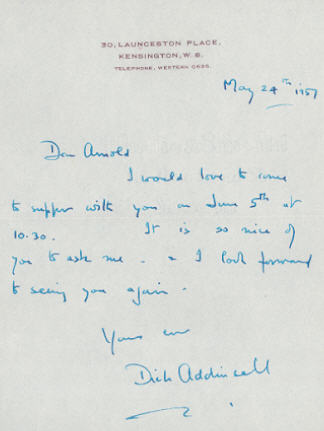 30, LAUNCESTON PLACE,
KENSINGTON, W. 8.
TELEPHONE, WESTERN 0635.
May 24th 1957
Dear Arnold
I would love to come
to supper with you on June 5th at
10.30. It is so nice of
you to ask me. - & I look forward
to seeing you again.
Yours ever
Dick Addinsell